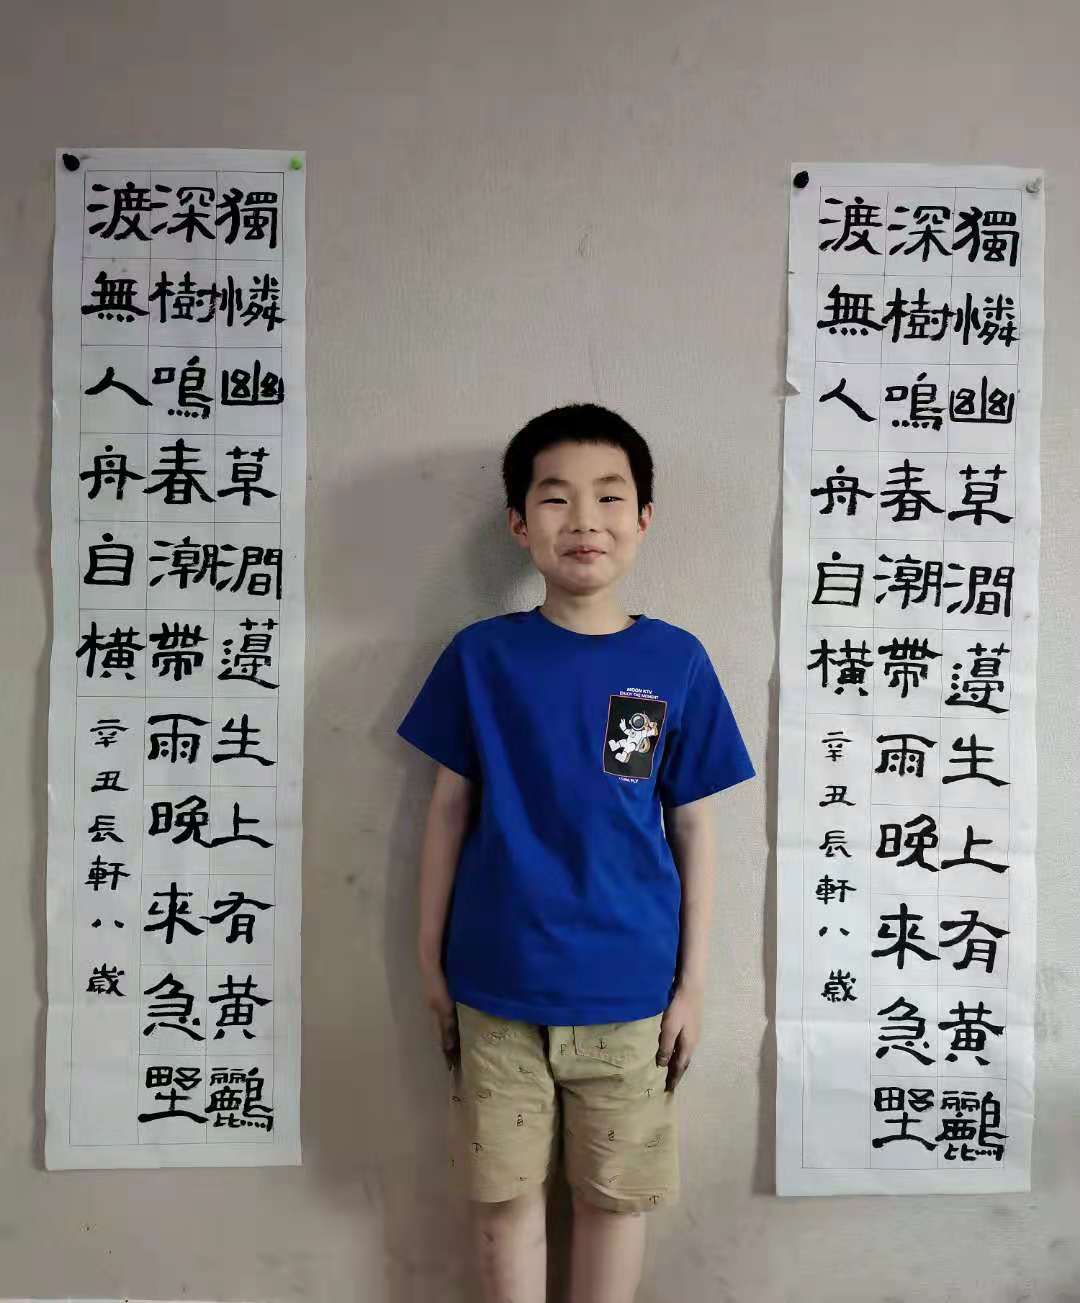 獨憐幽草澗邊生上有黄鸝
深樹鳴春潮帶雨晚來急野
渡無人舟自橫
辛丑長軒八歲
MOON KTV
ENJOY THE MOMENT
獨憐幽草澗邊生上有黄鸝
深樹鳴春潮帶雨晚來急野
渡無人舟自橫
辛丑長軒八歲